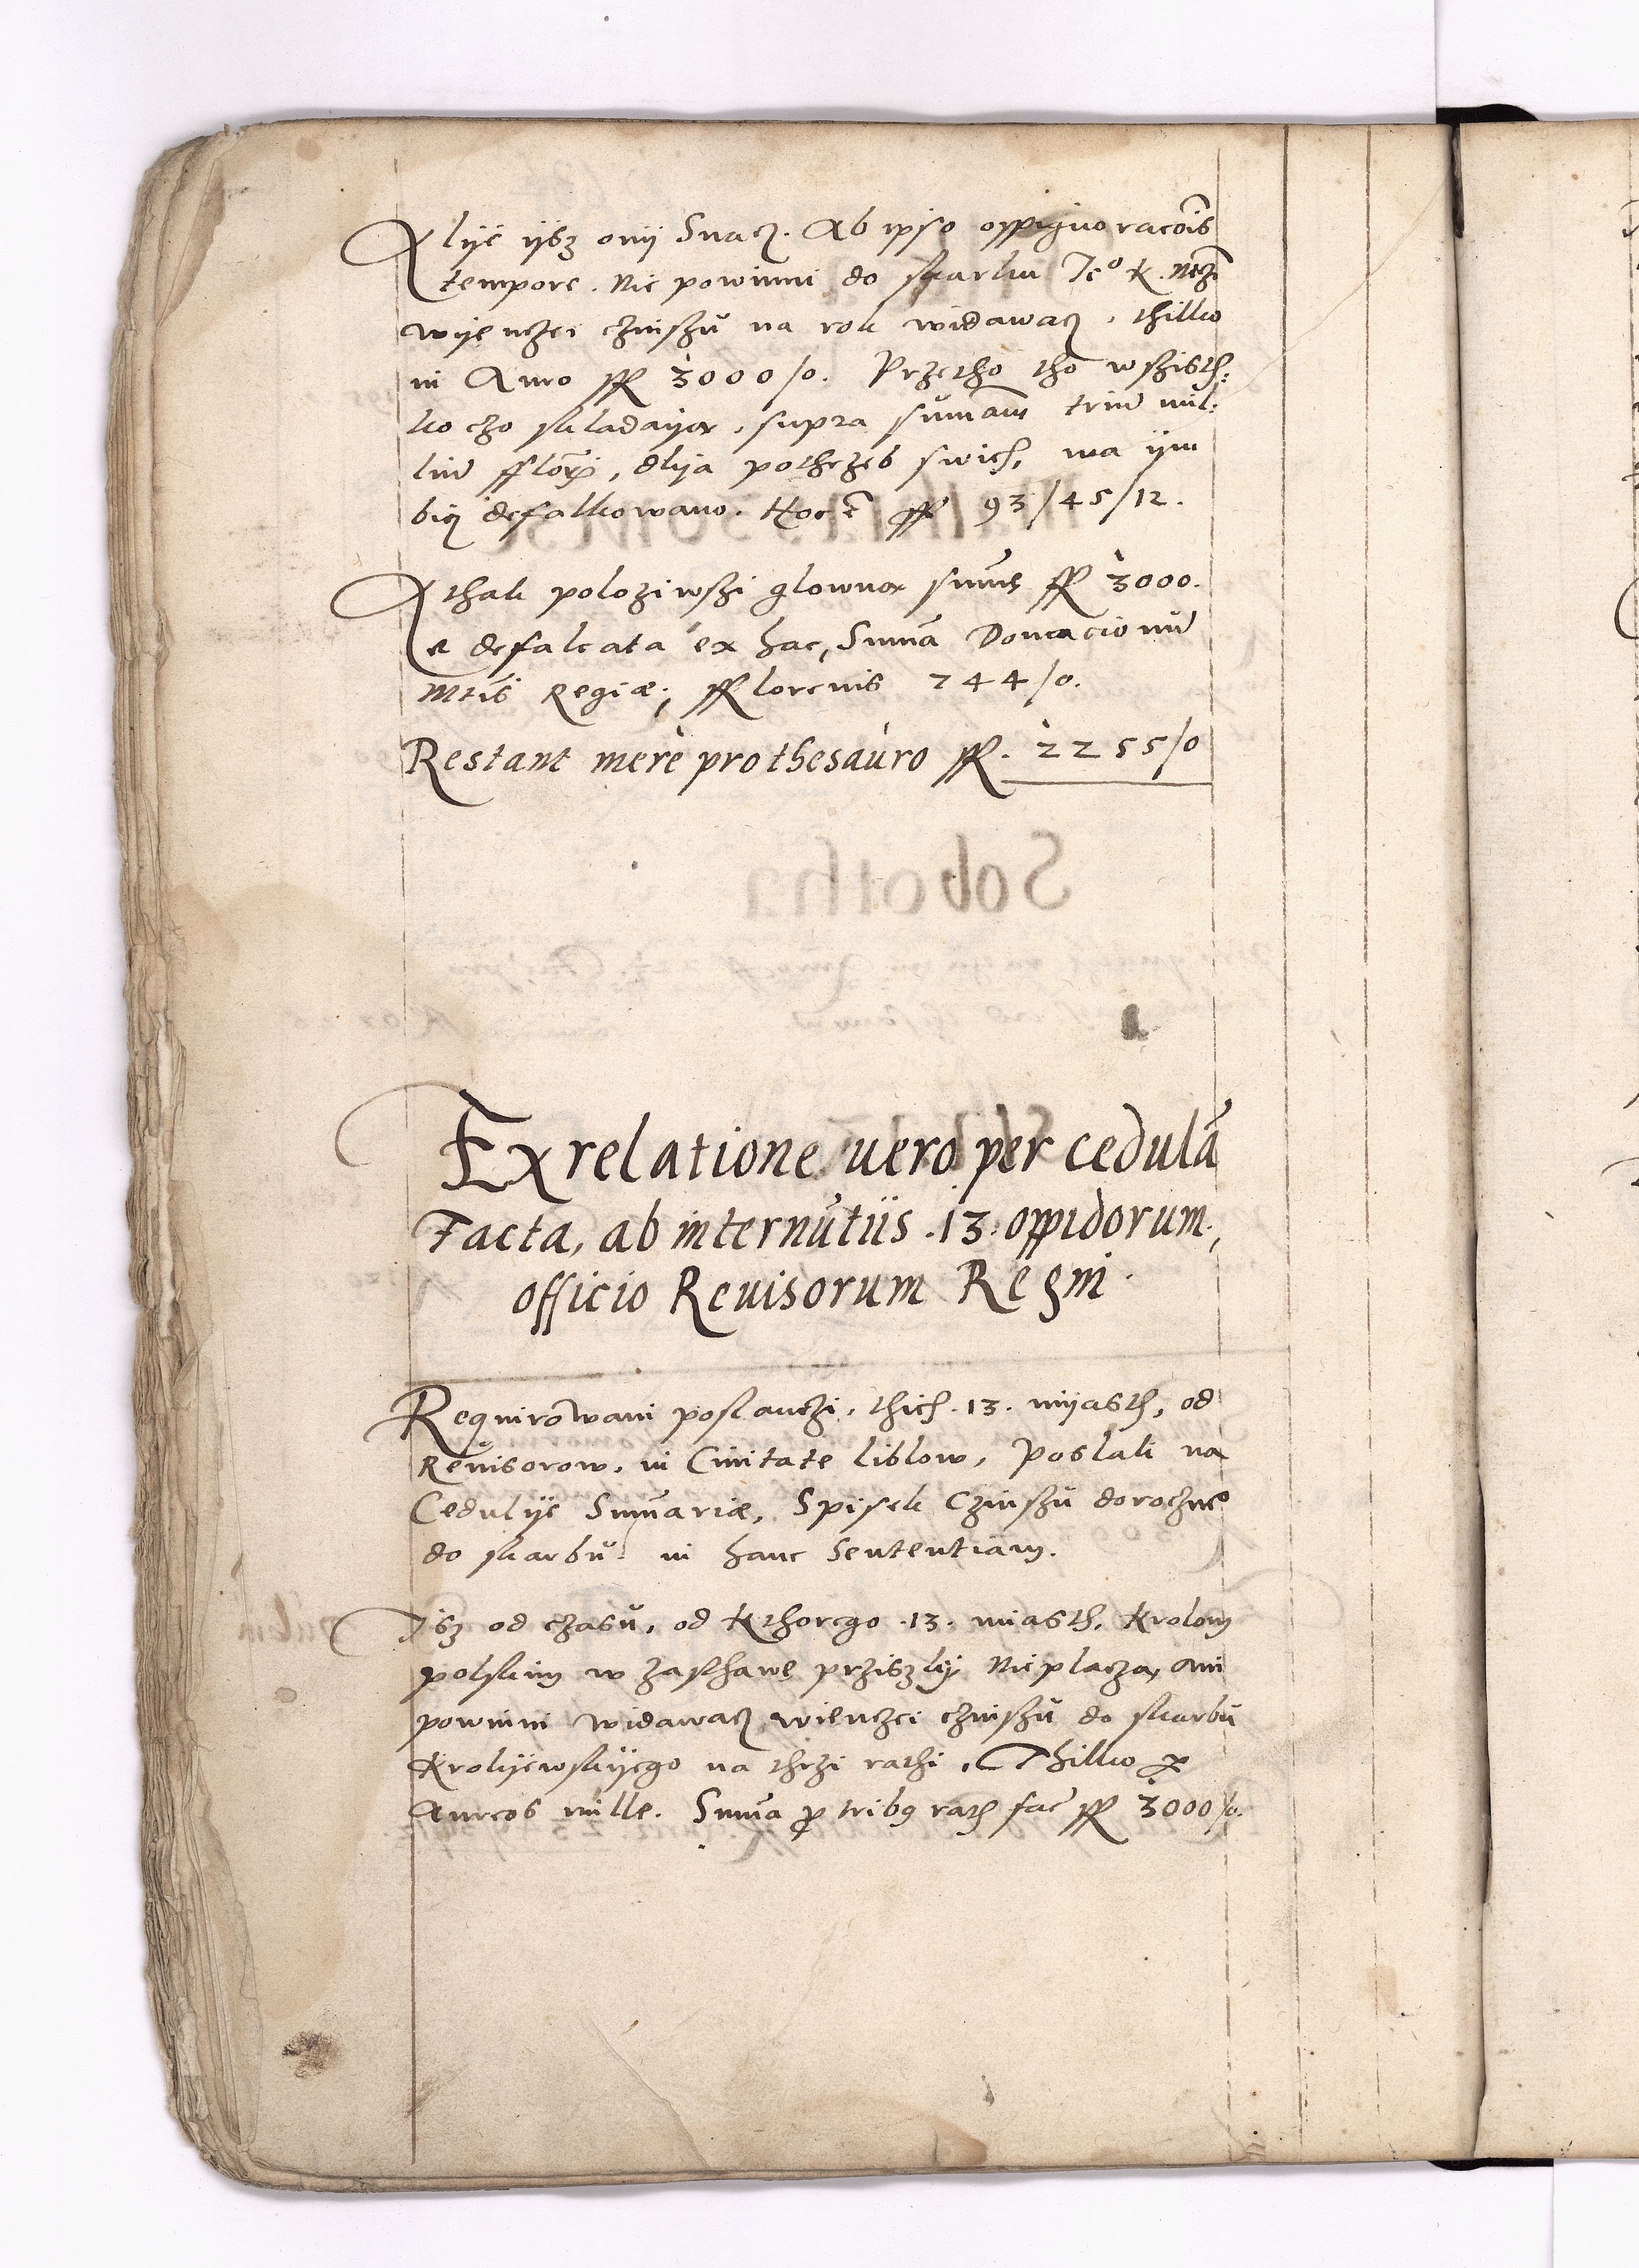 Alye ysz ony Snacz. Ab ipso oppignoracōis
tempore. Nic powinni do skarbu Je° K. Mczi
wyenczei czinszu na rok widawacz, thilko
in Auro ff 3000/0. Przetho tho wszisth:
ko czo skladaya, supra sumam triu mil:
liu fflor, dlya pothrzeb swich, ma ym
bicz defalkowano. Hoc ē ff 93/45/12.
A thak poloziwszi glowna sumę ff 3000.
a defalcata ex hac, Suma Donacionu
Mtis Regiæ; fflorenis 744/0.
Restant merè pro thesauro ff. 2255/0
Ex relatione uero per cedulā
Facta, ab internutiis .13. oppidorum,
officio Reuisorum Regni.
Requirowani poslanczi, thich .13. myasth, od
Reuisorow, in Ciuitate liblow, Poslali na
Cedulye Sumariæ, Spisek Czinszu doroczne°
do skarbu in hanc Sententiam.
Isz od czasu, od Kthorego .13. miasth, Krolom
polskim w zasthawę prziszly Nic placza, ani
powinni widawacz wienczei czinszu do skarbu
Krolyewskyego na thrzi rathi, Thilko p
Aureos mille. Suma p tribq rath fac ff 3000/0.